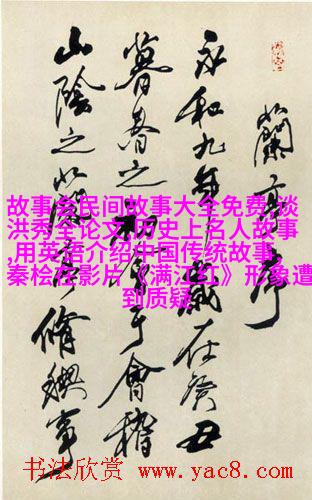 蘭亭序
永和九年歲在癸丑
暮春之初會于會稽
山陰之蘭亭脩禊事
故事会民间故事大全免费,谈
洪秀全论文,历史上名人故事
,用英语介绍中国传统故事,
秦桧在影片《满江红》形象遭
到质疑
书法欣赏 www.yac8.com